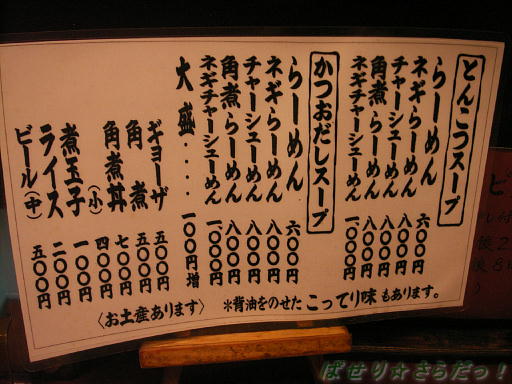 とんこつスープ
らーめん 六〇〇円
ネギらーめん 八〇〇円
チャーシューめん 八〇〇円
角煮らーめん 八〇〇円
ネギチャーシューめん 一、〇〇〇円
かつおだしスープ
らーめん 六〇〇円
ネギらーめん 八〇〇円
チャーシューめん 八〇〇円
角煮らーめん 八〇〇円
ネギチャーシューめん 一、〇〇〇円
大盛・・・・一〇〇円増
ギョーザ 五〇〇円
角煮 五〇〇円
角煮丼 七〇〇円
(小) 四〇〇円
煮玉子 一〇〇円
ライス 二〇〇円
ビール(中) 五〇〇円
※背油をのせたこってり味もあります。
〈お土産あります〉
ぱせり☆さらだっ!